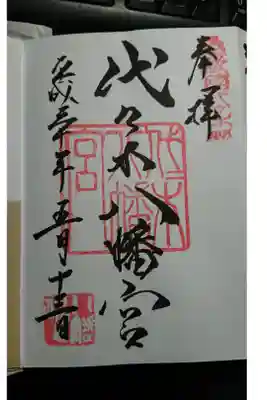 奉拝
代々木八幡宮
平成三十年五月十三日